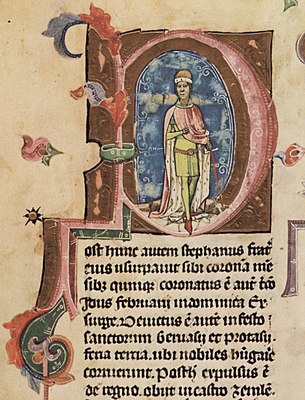 ost hunc autem stephanus frat̄
eius usurpauit sibi coronā me
sibꝫ quinqꝫ coronatus ē aut̄
Idus februarii in dominica Ex
surge. Deuictus ē aūt in festo
sanctorum Geruasy et protasy.
feria tercia. ubi nobiles hūgarie
corruerunt. Postħ expulsus ē
de regno. obiit in castro zemlē.